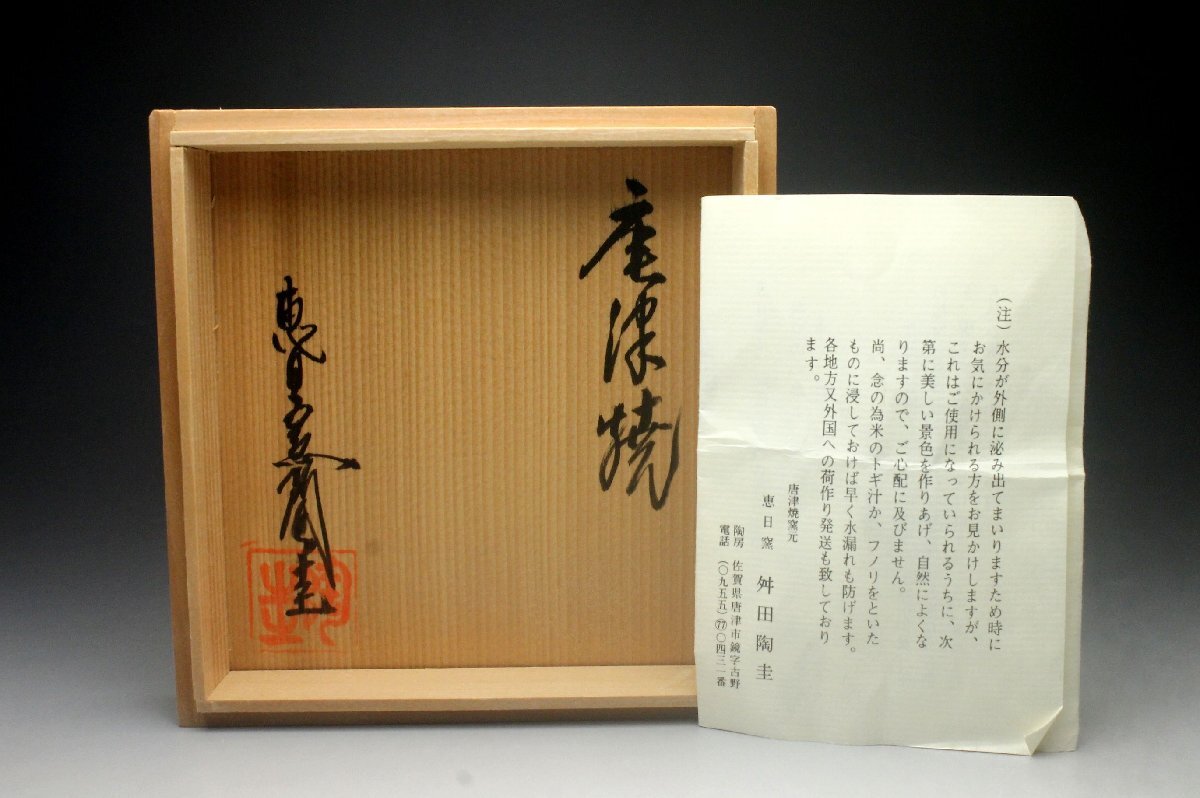 唐津焼
恵日窯陶圭
（注）水分が外側に泌み出てまいりますため時に
お気にかけられる方をお見かけしますが、
これはご使用になっていられるうちに、次
第に美しい景色を作りあげ、自然によくな
りますので、ご心配に及びません。
尚、念の為米のトギ汁か、フノリをといた
ものに浸しておけば早く水漏れも防げます。
各地方又外国への荷作り発送も致しており
ます。
唐津焼窯元
恵日窯 舛田陶圭
陶房 佐賀県唐津市鏡字古野
電話 （〇九五五）㊆〇四三一番